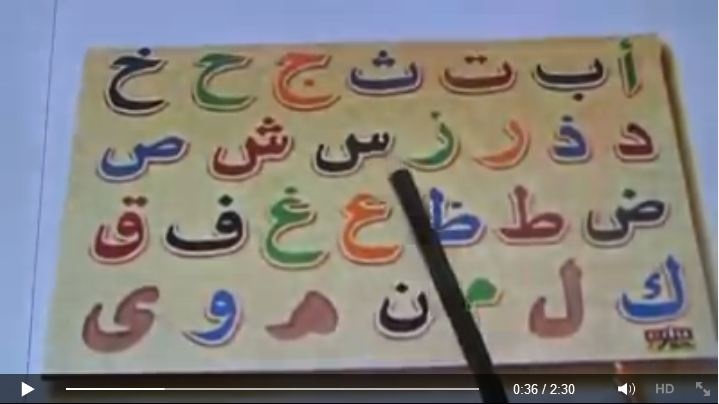 أ ب ت ث ج ح خ
د ذ ر ز س ش ص
ض ط ظ ع غ ف ق
ك ل م ن ه و ى
0:36 / 2:30 HD